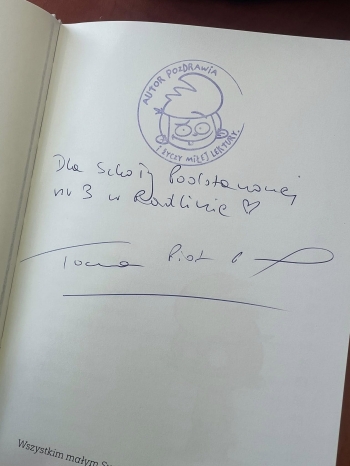 AUTOR POZDRAWIA
I ŻYCZY MIŁEJ LEKTURY.
Dla Szkoły Podstawowej
nr 3 w Radlinie ♡
Wszystkim małym